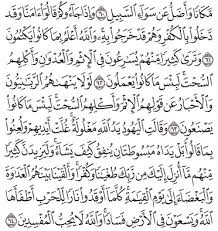 مَّكَانًا وَأَضَلُّ عَن سَوَآءِ ٱلسَّبِيلِ ٦٠ وَإِذَا جَآءُوكُمْ قَالُوٓا۟ ءَامَنَّا وَقَد
دَّخَلُوا۟ بِٱلْكُفْرِ وَهُمْ قَدْ خَرَجُوا۟ بِهِۦ وَٱللَّهُ أَعْلَمُ بِمَا كَانُوا۟ يَكْتُمُونَ
٦١ وَتَرَىٰ كَثِيرًا مِّنْهُمْ يُسَٰرِعُونَ فِى ٱلْإِثْمِ وَٱلْعُدْوَٰنِ وَأَكْلِهِمُ
ٱلسُّحْتَ لَبِئْسَ مَا كَانُوا۟ يَعْمَلُونَ ٦٢ لَوْلَا يَنْهَىٰهُمُ ٱلرَّبَّٰنِيُّونَ
وَٱلْأَحْبَارُ عَن قَوْلِهِمُ ٱلْإِثْمَ وَأَكْلِهِمُ ٱلسُّحْتَ لَبِئْسَ مَا كَانُوا۟
يَصْنَعُونَ ٦٣ وَقَالَتِ ٱلْيَهُودُ يَدُ ٱللَّهِ مَغْلُولَةٌ غُلَّتْ أَيْدِيهِمْ وَلُعِنُوا۟
بِمَا قَالُوا۟ بَلْ يَدَاهُ مَبْسُوطَتَانِ يُنفِقُ كَيْفَ يَشَآءُ وَلَيَزِيدَنَّ كَثِيرًا
مِّنْهُم مَّآ أُنزِلَ إِلَيْكَ مِن رَّبِّكَ طُغْيَٰنًا وَكُفْرًا وَأَلْقَيْنَا بَيْنَهُمُ ٱلْعَدَٰوَةَ
وَٱلْبَغْضَآءَ إِلَىٰ يَوْمِ ٱلْقِيَٰمَةِ كُلَّمَآ أَوْقَدُوا۟ نَارًا لِّلْحَرْبِ أَطْفَأَهَا
ٱللَّهُ وَيَسْعَوْنَ فِى ٱلْأَرْضِ فَسَادًا وَٱللَّهُ لَا يُحِبُّ ٱلْمُفْسِدِينَ ٦٤